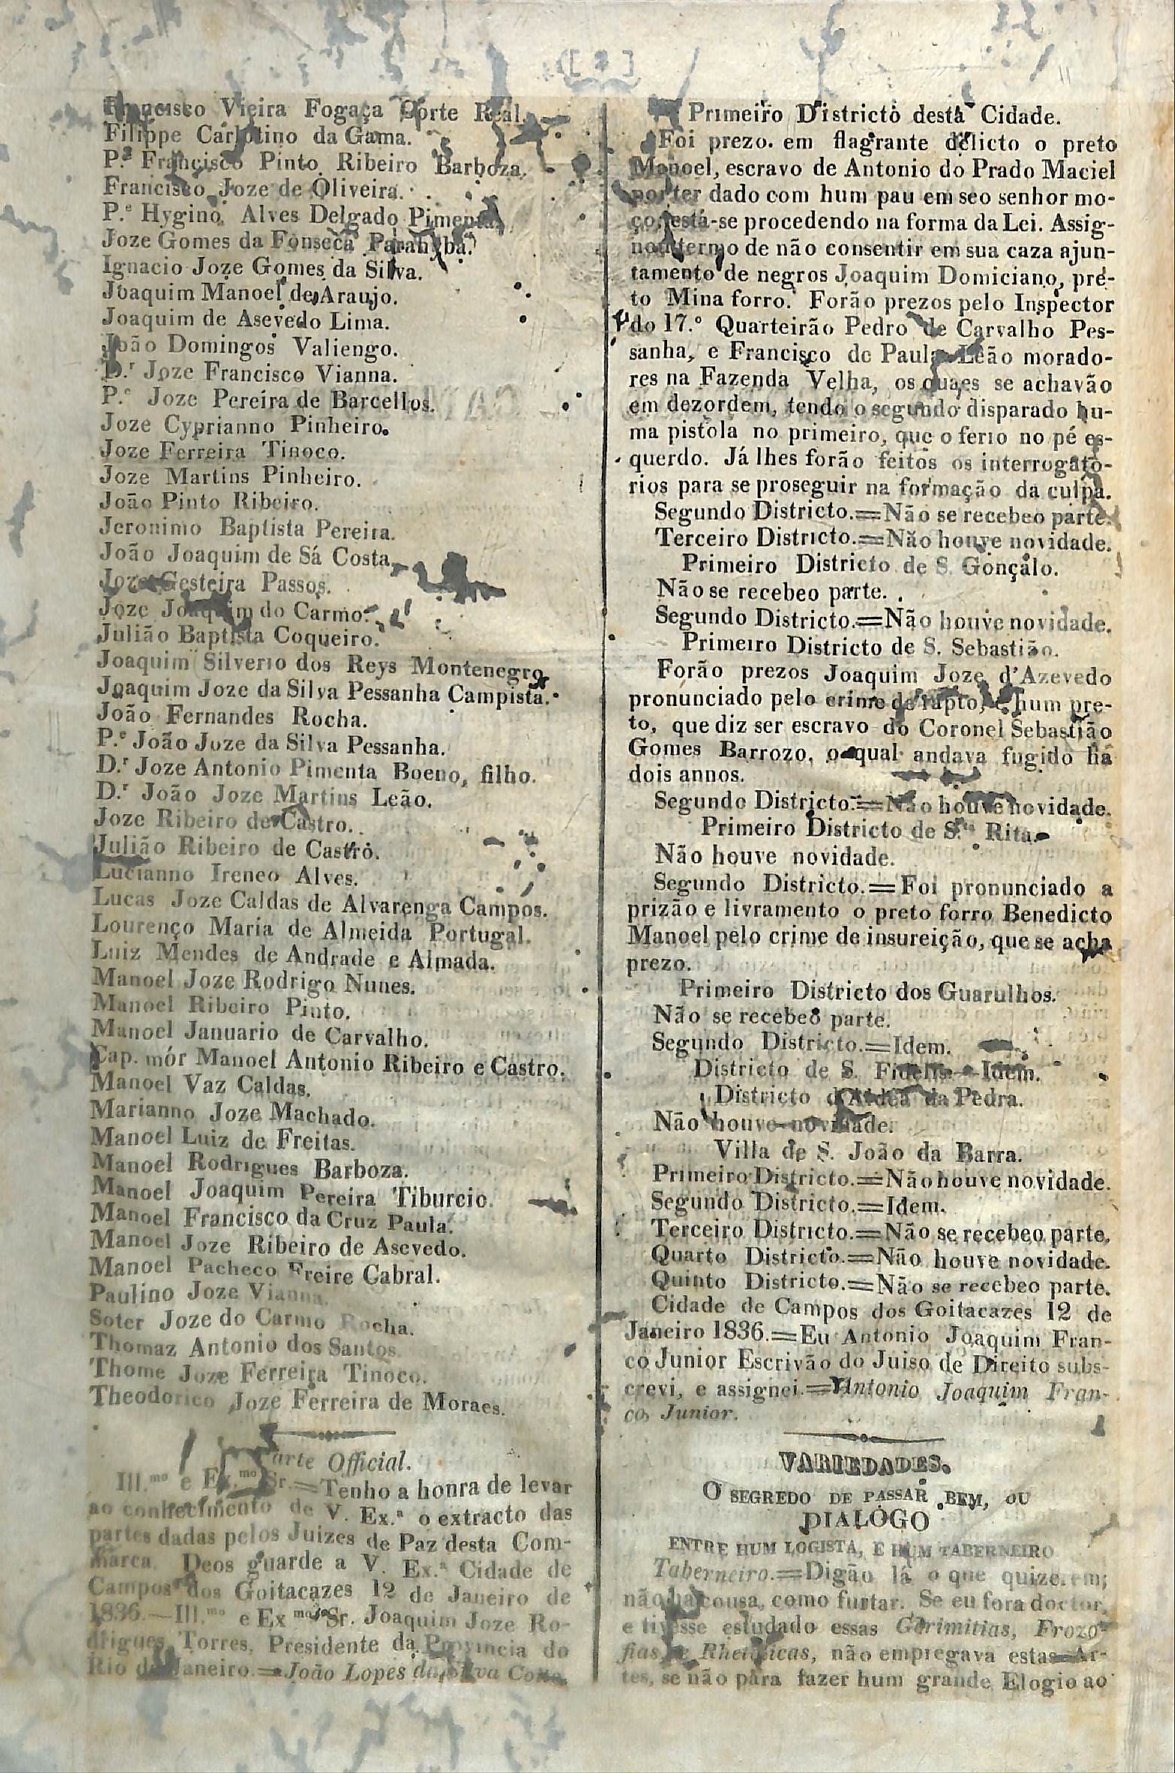 [ 2 ]
Francisco Vieira Fogaça Corte Real.
Filippe Carlotino da Gama.
P.e Francisco Pinto Ribeiro Barboza.
Francisco Joze de Oliveira.
P.e Hygino Alves Delgado Pimenta.
Joze Gomes da Fonseca Parahyba.
Ignacio Joze Gomes da Silva.
Joaquim Manoel de Araujo.
Joaquim de Asevedo Lima.
João Domingos Valiengo.
D.r Joze Francisco Vianna.
P.e Joze Pereira de Barcellos.
Joze Cyprianno Pinheiro.
Joze Ferreira Tinoco.
Joze Martins Pinheiro.
João Pinto Ribeiro.
Jeronimo Baptista Pereira.
João Joaquim de Sá Costa.
Joze Gesteira Passos.
Joze Joaquim do Carmo.
Julião Baptista Coqueiro.
Joaquim Silverio dos Reys Montenegro.
Joaquim Joze da Silva Pessanha Campista.
João Fernandes Rocha.
P.e João Joze da Silva Pessanha.
D.r Joze Antonio Pimenta Boeno, filho.
D.r João Joze Martins Leão.
Joze Ribeiro de Castro.
Julião Ribeiro de Castro.
Lucianno Ireneo Alves.
Lucas Joze Caldas de Alvarenga Campos.
Lourenço Maria de Almeida Portugal.
Luiz Mendes de Andrade e Almada.
Manoel Joze Rodrigo Nunes.
Manoel Ribeiro Pinto.
Manoel Januario de Carvalho.
Cap. mór Manoel Antonio Ribeiro e Castro.
Manoel Vaz Caldas.
Marianno Joze Machado.
Manoel Luiz de Freitas.
Manoel Rodrigues Barboza.
Manoel Joaquim Pereira Tiburcio.
Manoel Francisco da Cruz Paula.
Manoel Joze Ribeiro de Asevedo.
Manoel Pacheco Freire Cabral.
Paulino Joze Vianna.
Soter Joze do Carmo Rocha.
Thomaz Antonio dos Santos.
Thome Joze Ferreira Tinoco.
Theodorico Joze Ferreira de Moraes.
Parte Official.
Ill.mo e Ex.mo Sr.=Tenho a honra de levar
ao conhecimento de V. Ex.a o extracto das
partes dadas pelos Juizes de Paz desta Com-
marca. Deos guarde a V. Ex.a Cidade de
Campos dos Goitacazes 12 de Janeiro de
1836.—Ill.mo e Ex mo Sr. Joaquim Joze Ro-
drigues Torres, Presidente da Provincia do
Rio de Janeiro.=João Lopes da Silva
Primeiro Districto desta Cidade.
Foi prezo. em flagrante delicto o preto
Manoel, escravo de Antonio do Prado Maciel
por ter dado com hum pau em seo senhor mo-
ço, está-se procedendo na forma da Lei. Assig-
nou termo de não consentir em sua caza ajun-
tamento de negros Joaquim Domiciano, pré-
to Mina forro. Forão prezos pelo Inspector
do 17.º Quarteirão Pedro de Carvalho Pes-
sanha, e Francisco de Paula Leão morado-
res na Fazenda Velha, os quaes se achavão
em dezordem, tendo o segundo disparado hu-
ma pistola no primeiro, que o ferio no pé es-
querdo. Já lhes forão feitos os interrogato-
rios para se proseguir na formação da culpa.
Segundo Districto.=Não se recebeo parte.
Terceiro Districto.=Não houve novidade.
Primeiro Districto de S. Gonçalo.
Não se recebeo parte.
Segundo Districto.=Não houve novidade.
Primeiro Districto de S. Sebastião.
Forão prezos Joaquim Joze d'Azevedo
pronunciado pelo crime de rapto, e hum pre-
to, que diz ser escravo do Coronel Sebastião
Gomes Barrozo, o qual andava fugido há
dois annos.
Segundo Districto.=Não houve novidade.
Primeiro Districto de S.ta Rita.
Não houve novidade.
Segundo Districto.=Foi pronunciado a
prizão e livramento o preto forro Benedicto
Manoel pelo crime de insureição, que se acha
prezo.
Primeiro Districto dos Guarulhos.
Não se recebeo parte.
Segundo Districto.=Idem.
Districto de S. Fidelis=Idem.
Districto d'Aldea da Pedra.
Não houve novidade.
Villa de S. João da Barra.
Primeiro Districto.=Não houve novidade.
Segundo Districto.=Idem.
Terceiro Districto.=Não se recebeo parte.
Quarto Districto.=Não houve novidade.
Quinto Districto.=Não se recebeo parte.
Cidade de Campos dos Goitacazes 12 de
Janeiro 1836.=Eu Antonio Joaquim Fran-
co Junior Escrivão do Juiso de Direito subs-
crevi, e assignei.=Antonio Joaquim Fran-
co, Junior.
VARIEDADES.
O SEGREDO DE PASSAR BEM, OU
DIALOGO
ENTRE HUM LOGISTA, E HUM TABERNEIRO
Taberneiro.=Digão lá o que quizerem;
não ha cousa, como furtar. Se eu fora doctor,
e tivesse estudado essas Gerimitias, Frozo-
fias, e Rhetoricas, não empregava estas Ar-
tes, se não para fazer hum grande Elogio ao